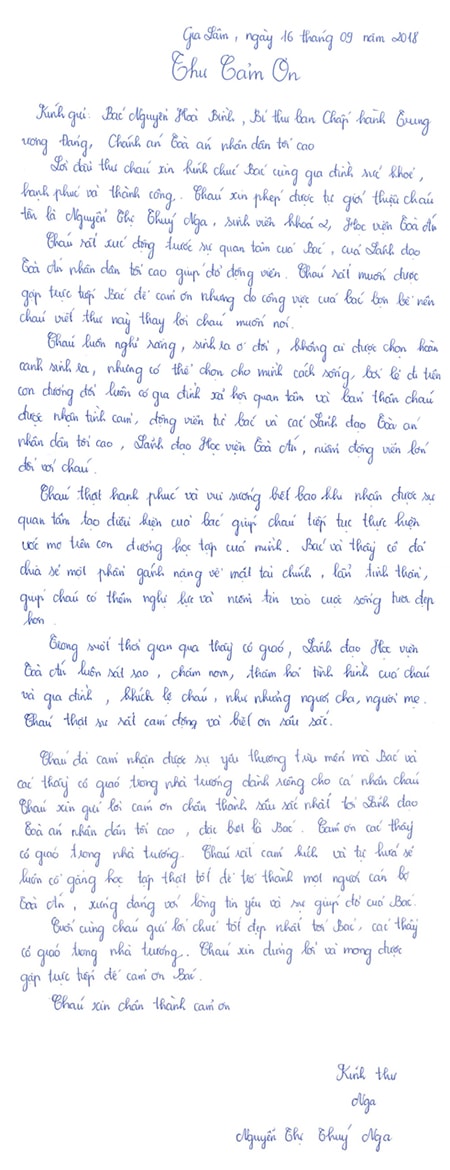 Gia Lâm, ngày 16 tháng 09 năm 2018
Thư Cảm Ơn
Kính gửi: Bác Nguyễn Hoà Bình, Bí thư ban Chấp hành Trung
ương Đảng, Chánh án Toà án nhân dân tối cao
Lời đầu thư cháu xin kính chúc Bác cùng gia đình sức khoẻ,
hạnh phúc và thành công. Cháu xin phép được tự giới thiệu cháu
tên là Nguyễn Thị Thuý Nga, sinh viên khoá 2, Học viện Toà Án
Cháu rất xúc động trước sự quan tâm của Bác, của Lãnh đạo
Toà Án nhân dân tối cao giúp đỡ động viên. Cháu rất muốn được
gặp trực tiếp Bác để cảm ơn nhưng do công việc của bác bộn bề nên
cháu viết thư này thay lời cháu muốn nói.
Cháu luôn nghĩ rằng, sinh ra ở đời, không ai được chọn hoàn
cảnh sinh ra, nhưng có thể chọn cho mình cách sống, bởi lẽ đi trên
con đường đời luôn có gia đình xã hội quan tâm và bản thân cháu
được nhận tình cảm, động viên từ bác và các Lãnh đạo Toà án
nhân dân tối cao, Lãnh đạo Học viện Toà Án, niềm động viên lớn
đối với cháu.
Cháu thật hạnh phúc và vui sướng biết bao khi nhận được sự
quan tâm tạo điều kiện của bác giúp cháu tiếp tục thực hiện
ước mơ trên con đường học tập của mình. Bác và thầy cô đã
chia sẻ một phần gánh nặng về mặt tài chính, lẫn tinh thần,
giúp cháu có thêm nghị lực và niềm tin vào cuộc sống tươi đẹp
hơn.
Trong suốt thời gian qua thầy cô giáo, Lãnh đạo Học viện
Toà Án luôn sát sao, chăm nom, thăm hỏi tình hình của cháu
và gia đình, khích lệ cháu, như những người cha, người mẹ.
Cháu thật sự rất cảm động và biết ơn sâu sắc.
Cháu đã cảm nhận được sự yêu thương trìu mến mà Bác và
các thầy cô giáo trong nhà trường dành riêng cho cá nhân cháu
Cháu xin gửi lời cảm ơn chân thành sâu sắc nhất tới Lãnh đạo
Toà án nhân dân tối cao, đặc biệt là Bác. Cảm ơn các thầy
cô giáo trong nhà trường. Cháu rất cảm kích và tự hứa sẽ
luôn cố gắng học tập thật tốt để trở thành một người cán bộ
Toà Án, xứng đáng với lòng tin yêu và sự giúp đỡ của Bác.
Cuối cùng cháu gửi lời chúc tốt đẹp nhất tới Bác, các thầy
cô giáo trong nhà trường. Cháu xin dừng lời và mong được
gặp trực tiếp để cảm ơn Bác.
Cháu xin chân thành cảm ơn
Kính thư
Nga
Nguyễn Thị Thuý Nga